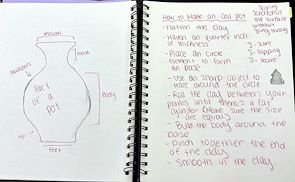 mouth
neck
shoulders
Part
of a
pot
Body
feet
How to Make an Coil pot
- Flatten the clay
- Have an quarter inch
of thickness
- Place an circle
element to form an
base
- Use an sharp object to
trace around the circle
- Roll the clay between your
palms until there's a fat
cylinder (Make sure the size
are equal)
- Build the body around the
base
- Pinch together the end
of the clay
- Smooth in the clay.
Scoring
the surface
S - score
S - slipping
S - secure